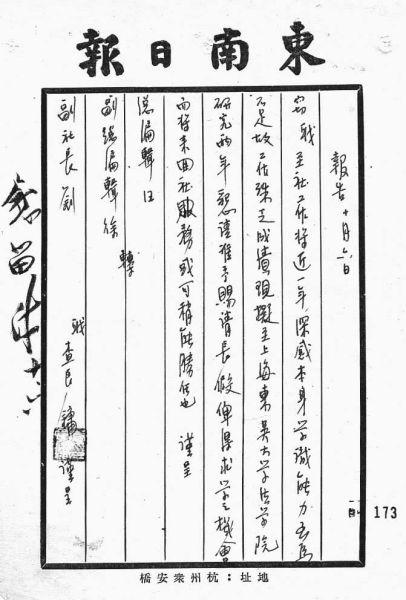 東南日報
報告 十月六日
竊職至社工作將近一年深感本身学識能力至為
不足故工作殊乏成績現擬至上海東吳大学法学院
研究两年懇請准予賜請長假俾得求学之機會
而將來回社服務或可稍能勝任也 謹呈
總編輯汪
副總編輯徐 轉
副社長劉
職查良鏞謹呈
173
地址:杭州衆安橋